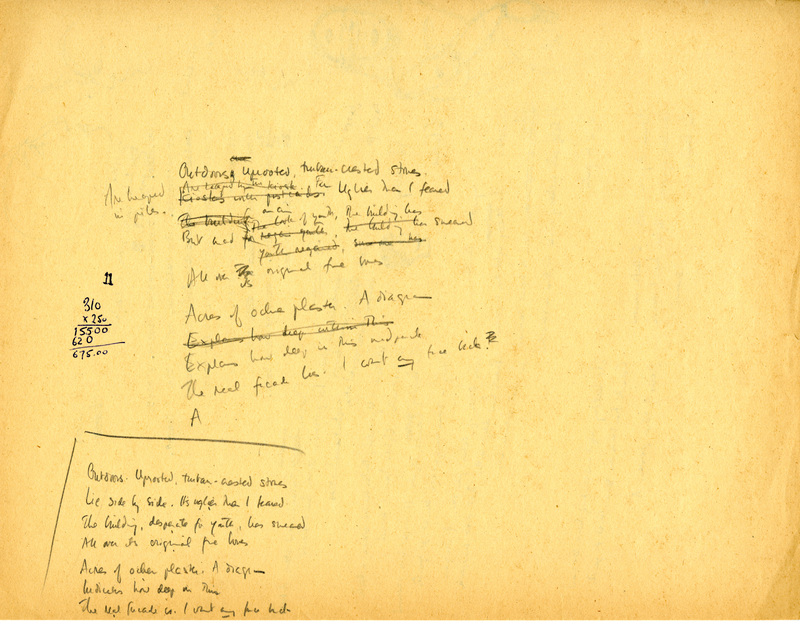 Outdoors. Uprooted, turban-crested stones
Are heaped by the kiosk. Far Uglier than I feared
Kiosks with postcards.
Are heaped
in piles..
The building The look of youth, The building has
But mad for youth, the building has smeared
youth regained,
All over its original fine lines
Acres of ochre plaster. A diagram
Explains how deep within this
Explains how deep in this mudpack
The real facade lies. I want my face back.
A
11
310
x 250
15500
620
675.00
Outdoors. Uprooted, turban-crested stones
Lie side by side. It's uglier than I feared.
The building, desperate for youth, has smeared
All over its original fine lines
Acres of ochre plaster. A diagram
Indicates how deep in this
The real facade is. I want my face back.